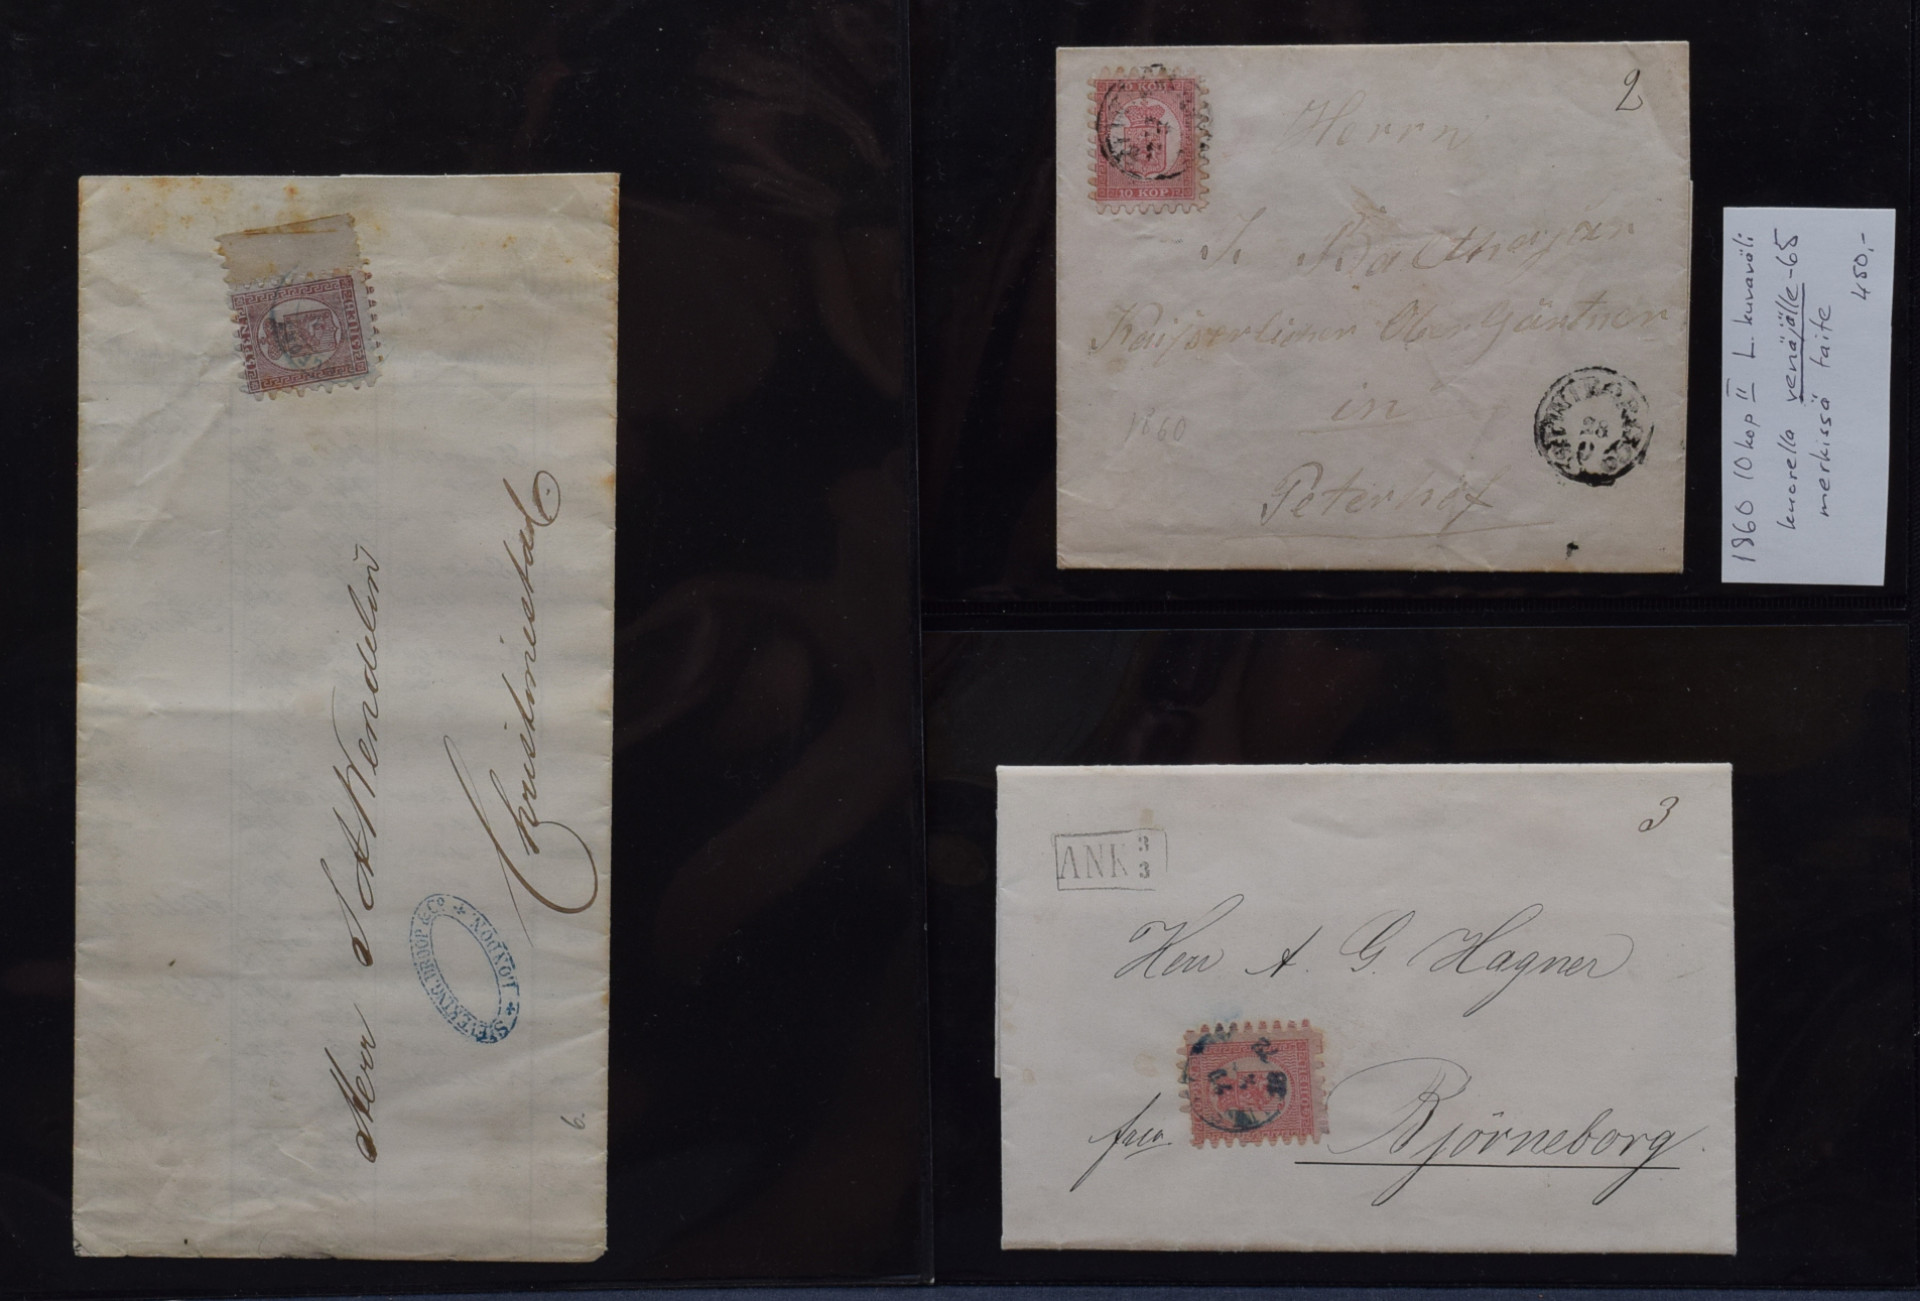 Herr S A Wendelin
Christinestad
SIEVEKING, DROOP & Co. LONDON.
6.
2
10 KOP
10 KOP
Herrn
in
Peterhof
1860
1860 10 kop II L. kuvaväli
kuorella venäjälle -65
merkissä taite
450,-
3
ANK 3
3
Herr A. G. Hagner
frco
Björneborg